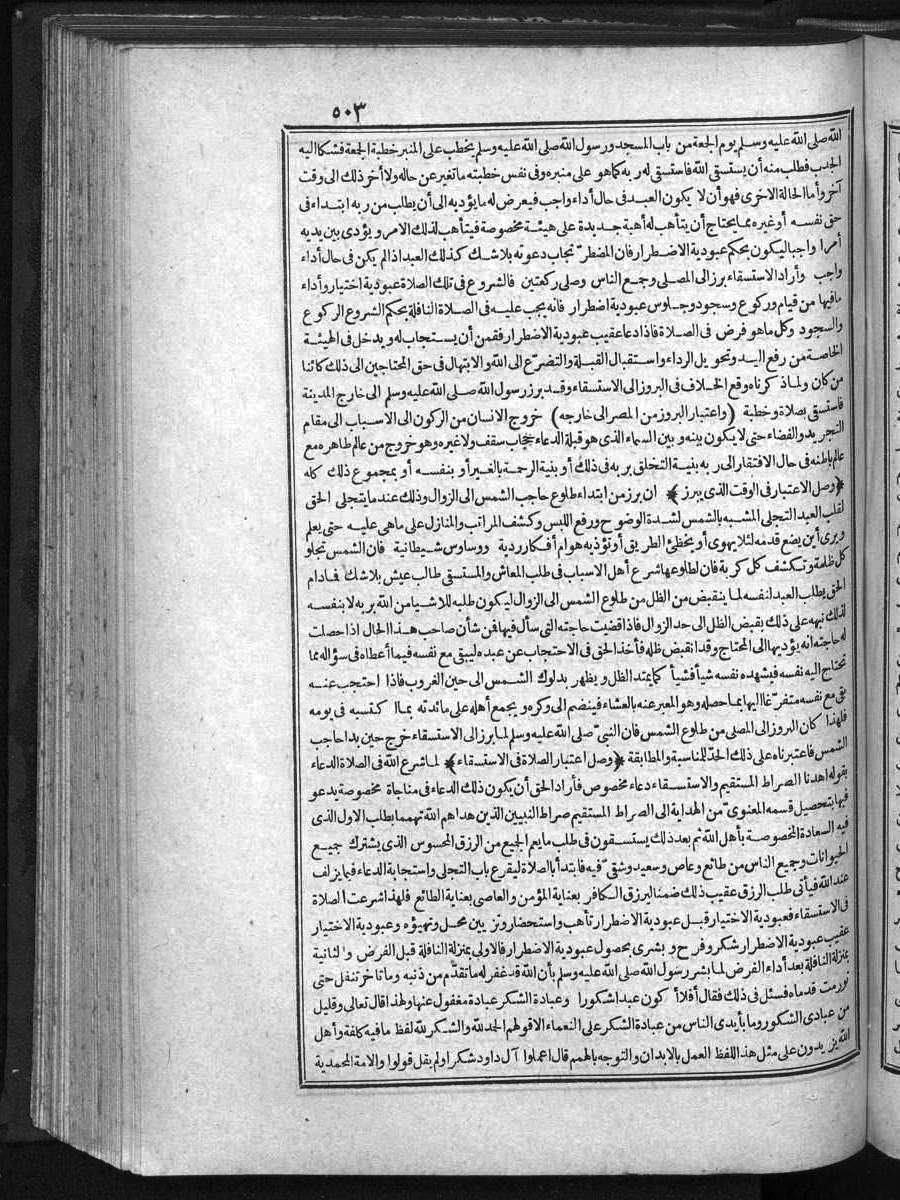 ٥٠٣
الله صلى الله عليه وسلم يوم الجمعة من باب المسجد ورسول الله صلى الله عليه وسلم يخطب على المنبر خطبة الجمعة فشكا اليه
الجدب فطلب منه أن يستسقى الله فاستسقى له ربه كما هو على منبره وفى نفس خطبته ما تغير عن حاله ولا أخر ذلك الى وقت
آخر وأما الحالة الاخرى فهو أن لا يكون العبد فى حال أداء واجب فيعرض له ما يؤديه الى أن يطلب من ربه ابتداء فى
حق نفسه أو غيره مما يحتاج أن يتأهب له أهبة جديدة على هيئة مخصوصة فيتأهب لذلك الامر ويؤدى بين يديه
أمرا واجبا ليكون بحكم عبودية الاضطرار فان المضطر تجاب دعوته بلا شك كذلك العبد اذا لم يكن فى حال أداء
واجب وأراد الاستسقاء برز الى المصلى وجمع الناس وصلى ركعتين فالشروع فى تلك الصلاة عبودية اختيار وأداء
ما فيها من قيام وركوع وسجود وجلوس عبودية اضطرار فانه يجب عليه فى الصلاة النافلة بحكم الشروع الركوع
والسجود وكل ما هو فرض فى الصلاة فاذا دعا عقيب عبودية الاضطرار فقمن أن يستجاب له ويدخل فى الهيئة
الخاصة من رفع اليد وتحويل الرداء واستقبال القبلة والتضرع الى الله والابتهال فى حق المحتاجين الى ذلك كائنا
من كان ولما ذكرناه وقع الخلاف فى البروز الى الاستسقاء وقد برز رسول الله صلى الله عليه وسلم الى خارج المدينة
فاستسقى بصلاة وخطبة (واعتبار البروز من المصر الى خارجه) خروج الانسان من الركون الى الاسباب الى مقام
التجريد والفضاء حتى لا يكون بينه وبين السماء الذى هو قبلة الدعاء حجاب سقف ولا غيره وهو خروج من عالم ظاهره مع
عالم باطنه فى حال الافتقار الى ربه بنية التخلق بربه فى ذلك أو بنية الرحمة بالغير أو بنفسه أو بمجموع ذلك كله
﴿وصل الاعتبار فى الوقت الذى يبرز﴾ ان برز من ابتداء طلوع حاجب الشمس الى الزوال وذلك عند ما يتجلى الحق
لقلب العبد التجلى المشبه بالشمس لشدة الوضوح ورفع اللبس وكشف المراتب والمنازل على ما هى عليه حتى يعلم
ويرى أين يضع قدمه لئلا يهوى أو يخطئ الطريق أو تؤذيه هوام أفكار ردية ووساوس شيطانية فان الشمس تجلو
كل ظلمة وتكشف كل كربة فان لطلوعها شرع أهل الاسباب فى طلب المعاش والمستسقى طالب عيش بلا شك فما دام
الحق يطلب العبد لنفسه لما ينقبض من الظل من طلوع الشمس الى الزوال ليكون طلبه للاشياء من الله بربه لا بنفسه
لذلك نبهه على ذلك بقبض الظل الى حد الزوال فاذا قضيت حاجته التى سأل فيها فمن شأن صاحب هذا الحال اذا حصلت
له حاجته انه يؤديها الى المحتاج وقد انقبض ظله فأخذ الحق فى الاحتجاب عن عبده ليبقى مع نفسه فيما أعطاه فى سؤاله مما
تحتاج اليه نفسه فيشهده نفسه شيأ فشيأ كما يمتد الظل ويظهر بدلوك الشمس الى حين الغروب فاذا احتجب عنه
بقى مع نفسه متفرغا اليها بما حصله وهو المعبر عنه بالعشاء فينضم الى وكره ويجمع أهله على مائدته بما اكتسبه فى يومه
فلهذا كان البروز الى المصلى من طلوع الشمس فان النبى صلى الله عليه وسلم لما برز الى الاستسقاء خرج حين بدا حاجب
الشمس فاعتبرناه على ذلك الحد للمناسبة والمطابقة ﴿وصل اعتبار الصلاة فى الاستسقاء﴾ لما شرع الله فى الصلاة الدعاء
بقوله اهدنا الصراط المستقيم والاستسقاء دعاء مخصوص فأراد الحق أن يكون ذلك الدعاء فى مناجاة مخصوصة يدعو
فيها بتحصيل قسمه المعنوى من الهداية الى الصراط المستقيم صراط النبيين الذين هداهم الله تهمما بطلب الاول الذى
فيه السعادة المخصوصة بأهل الله ثم بعد ذلك يستسقون فى طلب ما يعم الجميع من الرزق المحسوس الذى يشترك جميع
الحيوانات وجميع الناس من طائع وعاص وسعيد وشقى فيه فابتدأ بالصلاة ليقرع باب التجلى واستجابة الدعاء فيما يزلف
عند الله فيأتى طلب الرزق عقيب ذلك ضمنا ليرزق الكافر بعناية المؤمن والعاصى بعناية الطائع فلهذا شرعت الصلاة
فى الاستسقاء فعبودية الاختيار قبل عبودية الاضطرار تأهب واستحضار وتزيين محل وتهيؤه وعبودية الاختيار
عقيب عبودية الاضطرار شكر وفرح وبشرى بحصول عبودية الاضطرار فالاولى بمنزلة النافلة قبل الفرض والثانية
بمنزلة النافلة بعد أداء الفرض لما بشر رسول الله صلى الله عليه وسلم بأن الله قد غفر له ما تقدم من ذنبه وما تأخر تنفل حتى
تورمت قدماه فسئل فى ذلك فقال أفلا أكون عبدا شكورا وعبادة الشكر عبادة مغفول عنها ولهذا قال تعالى وقليل
من عبادى الشكور وما بأيدى الناس من عبادة الشكر على النعماء الا قولهم الحمد لله والشكر لله لفظ ما فيه كلفة وأهل
الله يزيدون على مثل هذا اللفظ العمل بالابدان والتوجه بالهمم قال اعملوا آل داود شكرا ولم يقل قولوا والامة المحمدية